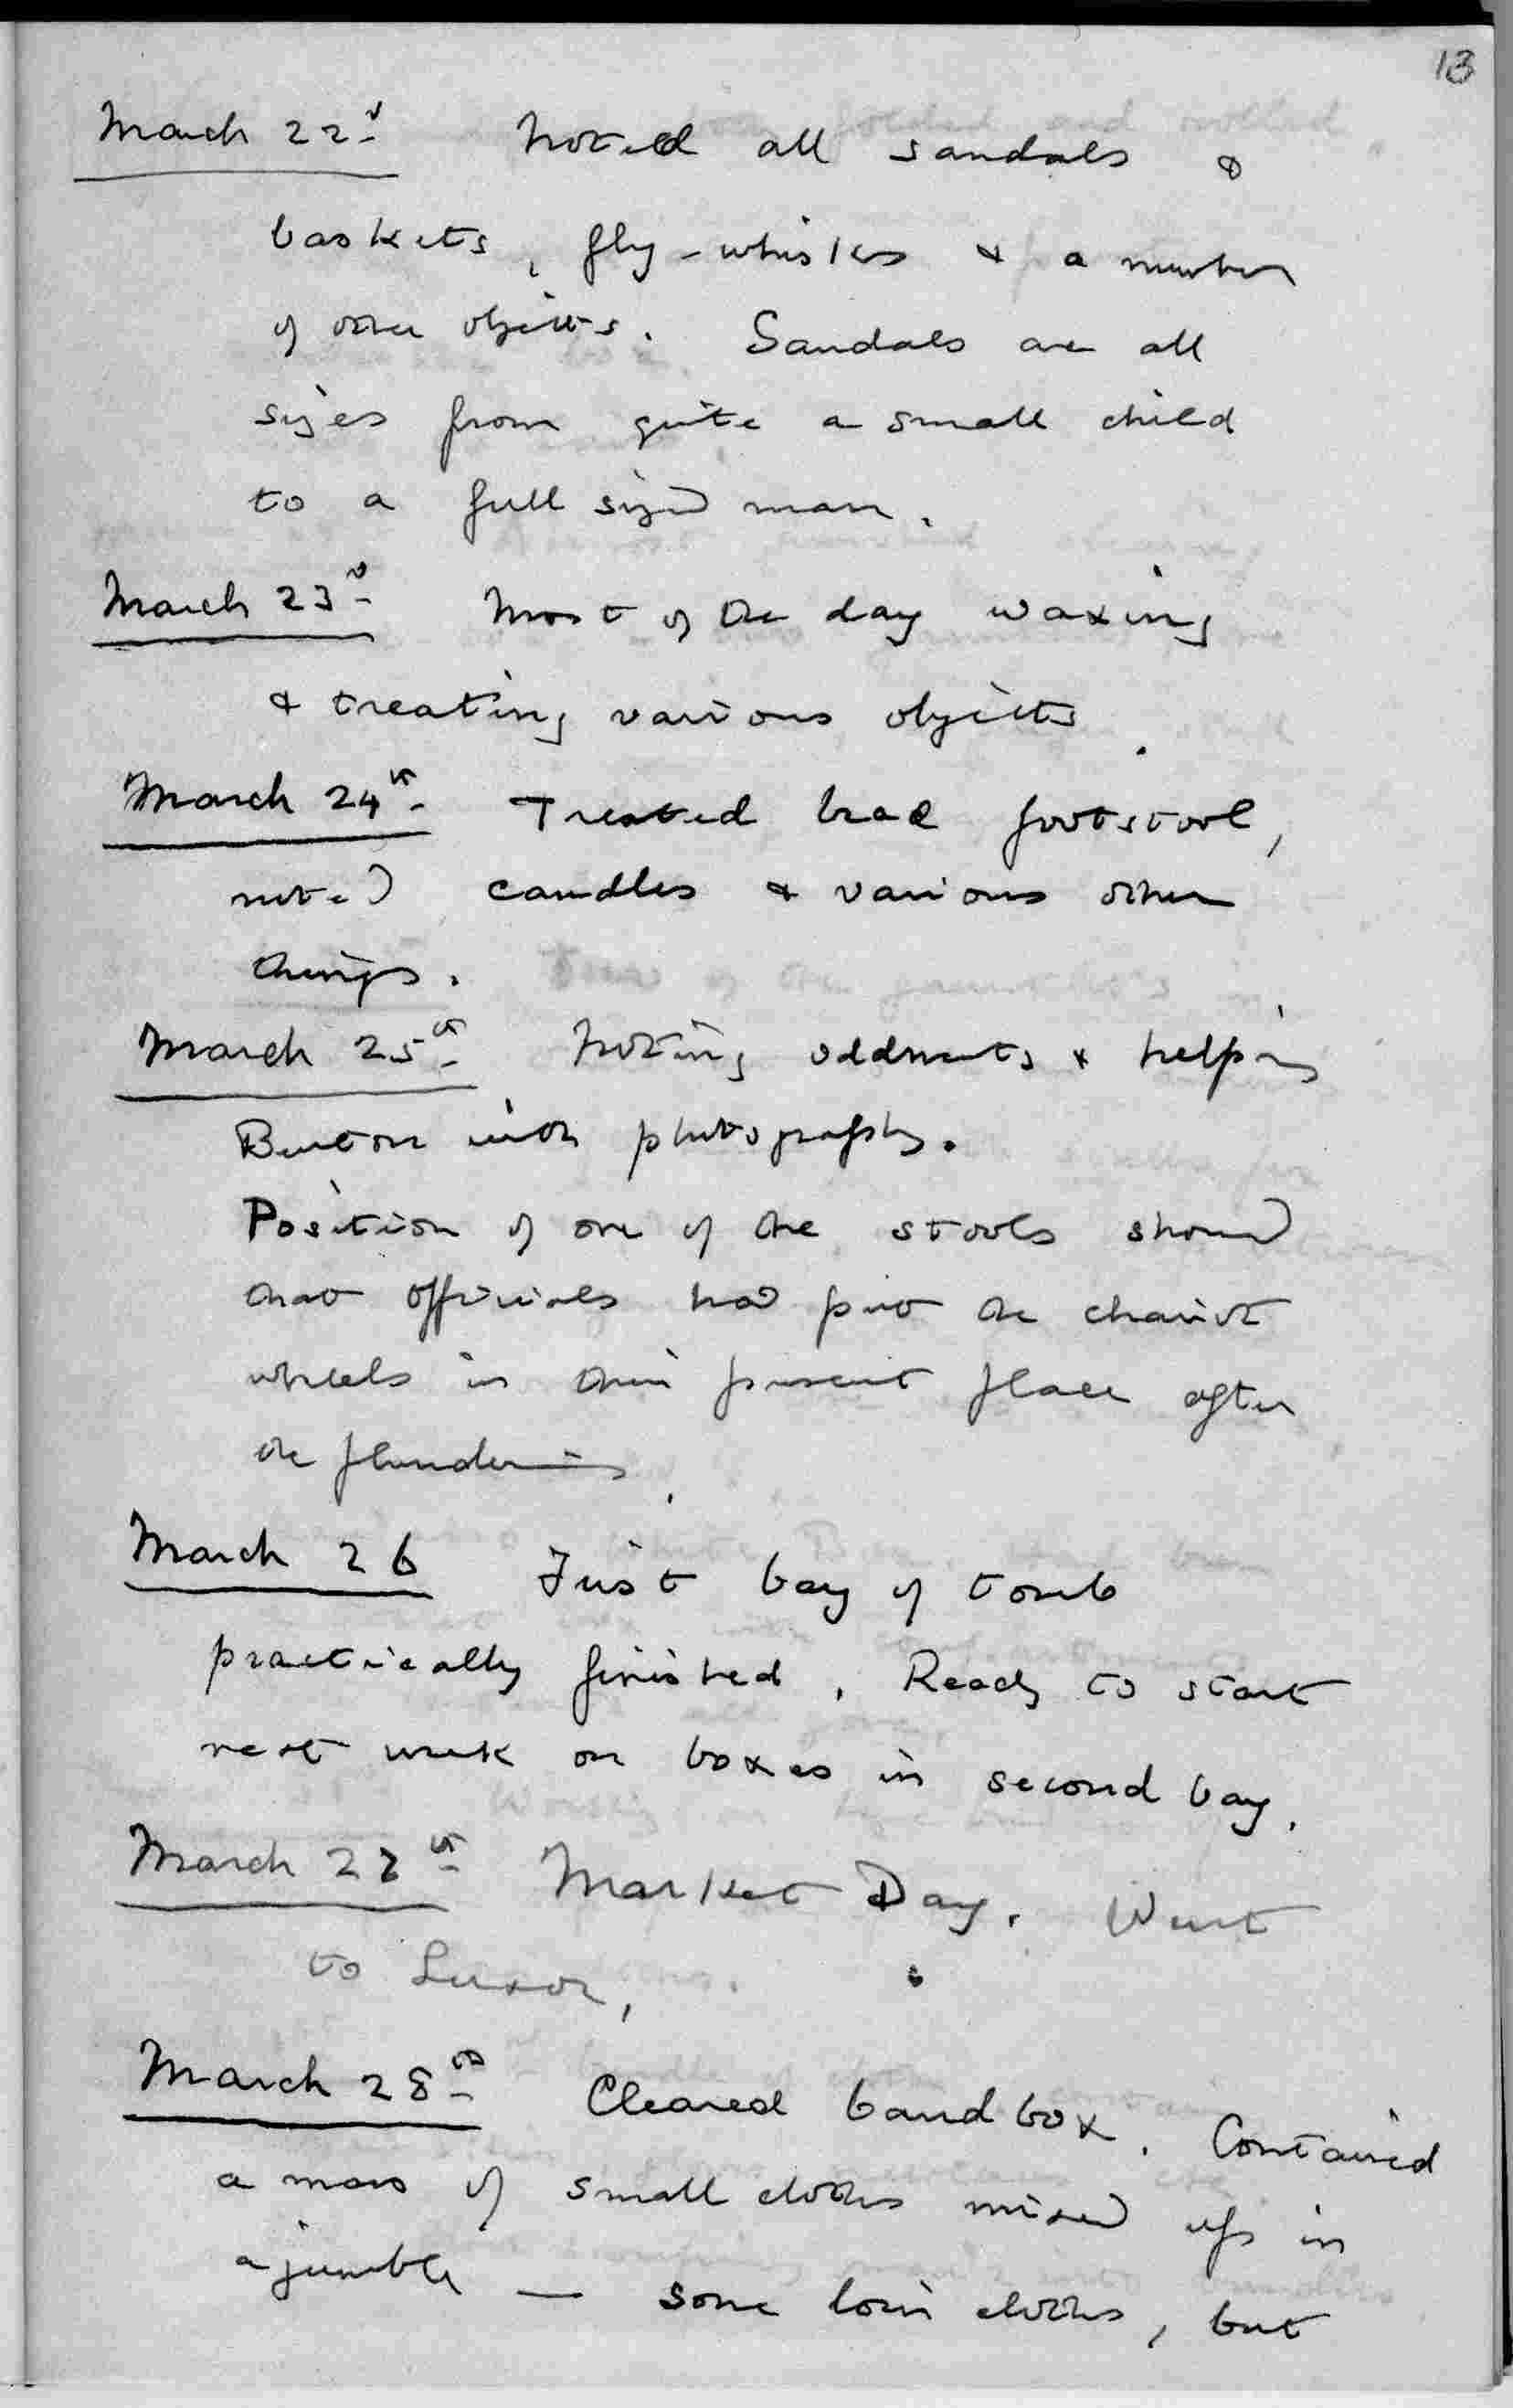 13
March 22d Noted all sandals &
baskets, fly-whisks & a number
of other objects. Sandals are all
sizes from quite a small child
to a full sized man.
March 23d Most of the day waxing
& treating various objects.
March 24th Treated bead footstool,
noted candles & various other
things.
March 25th Noting oddments & helping
Burton with photography.
Position of one of the stools showed
that officials had put the chariot
wheels in their present place after
the plundering.
March 26 First bay of tomb
practically finished. Ready to start
next week on boxes in second bay.
March 27th Market Day. Went
to Luxor.
March 28th Cleared band box. Contained
a mass of small cloths mixed up in
a jumble — some loin cloths, but